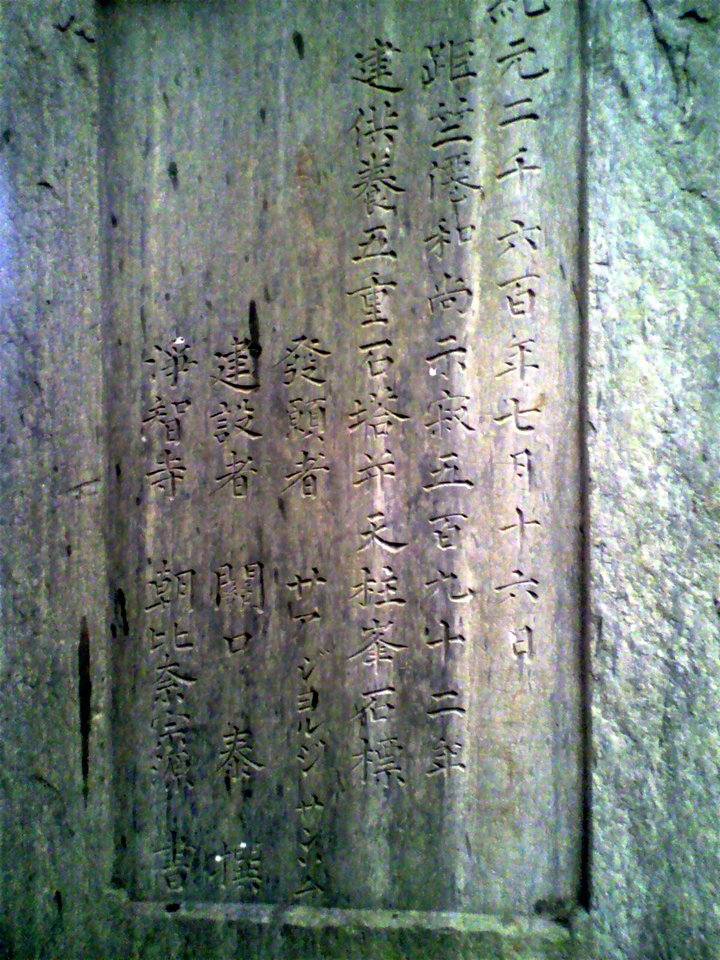 紀元二千六百年七月十六日
距竺僊和尚示寂五百九十二年
建供養五重石塔并天柱峯石標
發願者 サア ジヨルジ サンソム
建設者 關口 泰 撰
淨智寺 朝比奈宗源 書